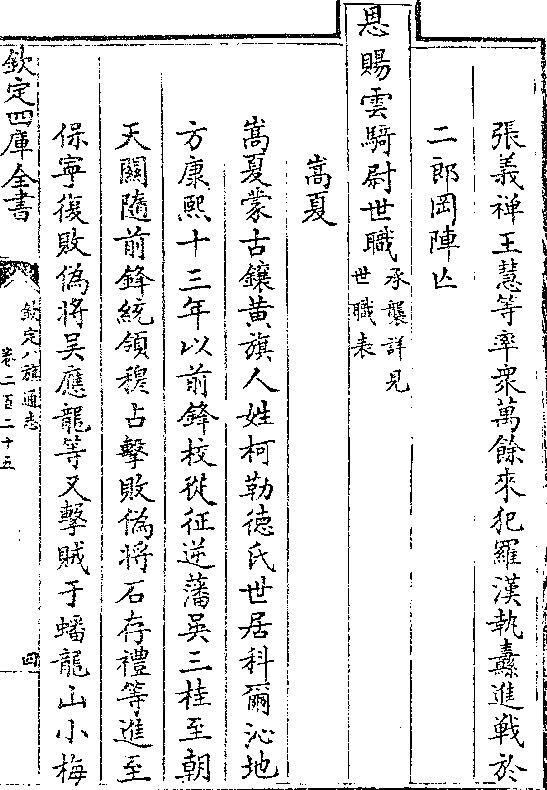 張義禅王慧等率衆萬餘來犯羅漢執纛進戰於
二郎岡陣亡
恩賜雲騎尉世職承襲詳見
世職表
嵩夏
嵩夏蒙古鑲黄旗人姓柯勒德氏世居科爾沁地
方康熙十三年以前鋒校從征逆藩吳三桂至朝
天關隨前鋒統領穆占擊敗偽将石存禮等進至
保寧復敗偽将吴應龍等又擊賊于蟠龍山小梅
欽定四庫全書
欽定八旗通志
卷二百二十五
四